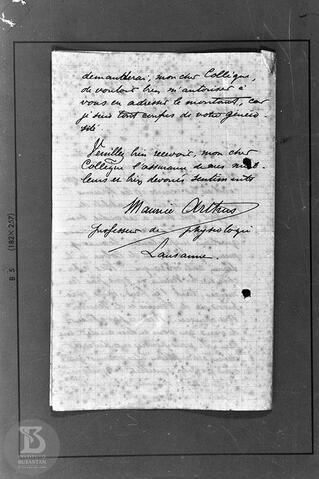 demanderai, mon cher Collègue,
de vouloir bien m'autoriser à
vous en adresser le montant, car
je suis tout confus de votre généro-
sité.
Veuillez bien recevoir, mon cher
Collègue l'assurance de mes meil-
leurs et bien dévoués sentiments
Maurice Arthus
professeur de physiologie
Lausanne.
B 5 (182 X 257)
INSTITUTO
BUTANTAN